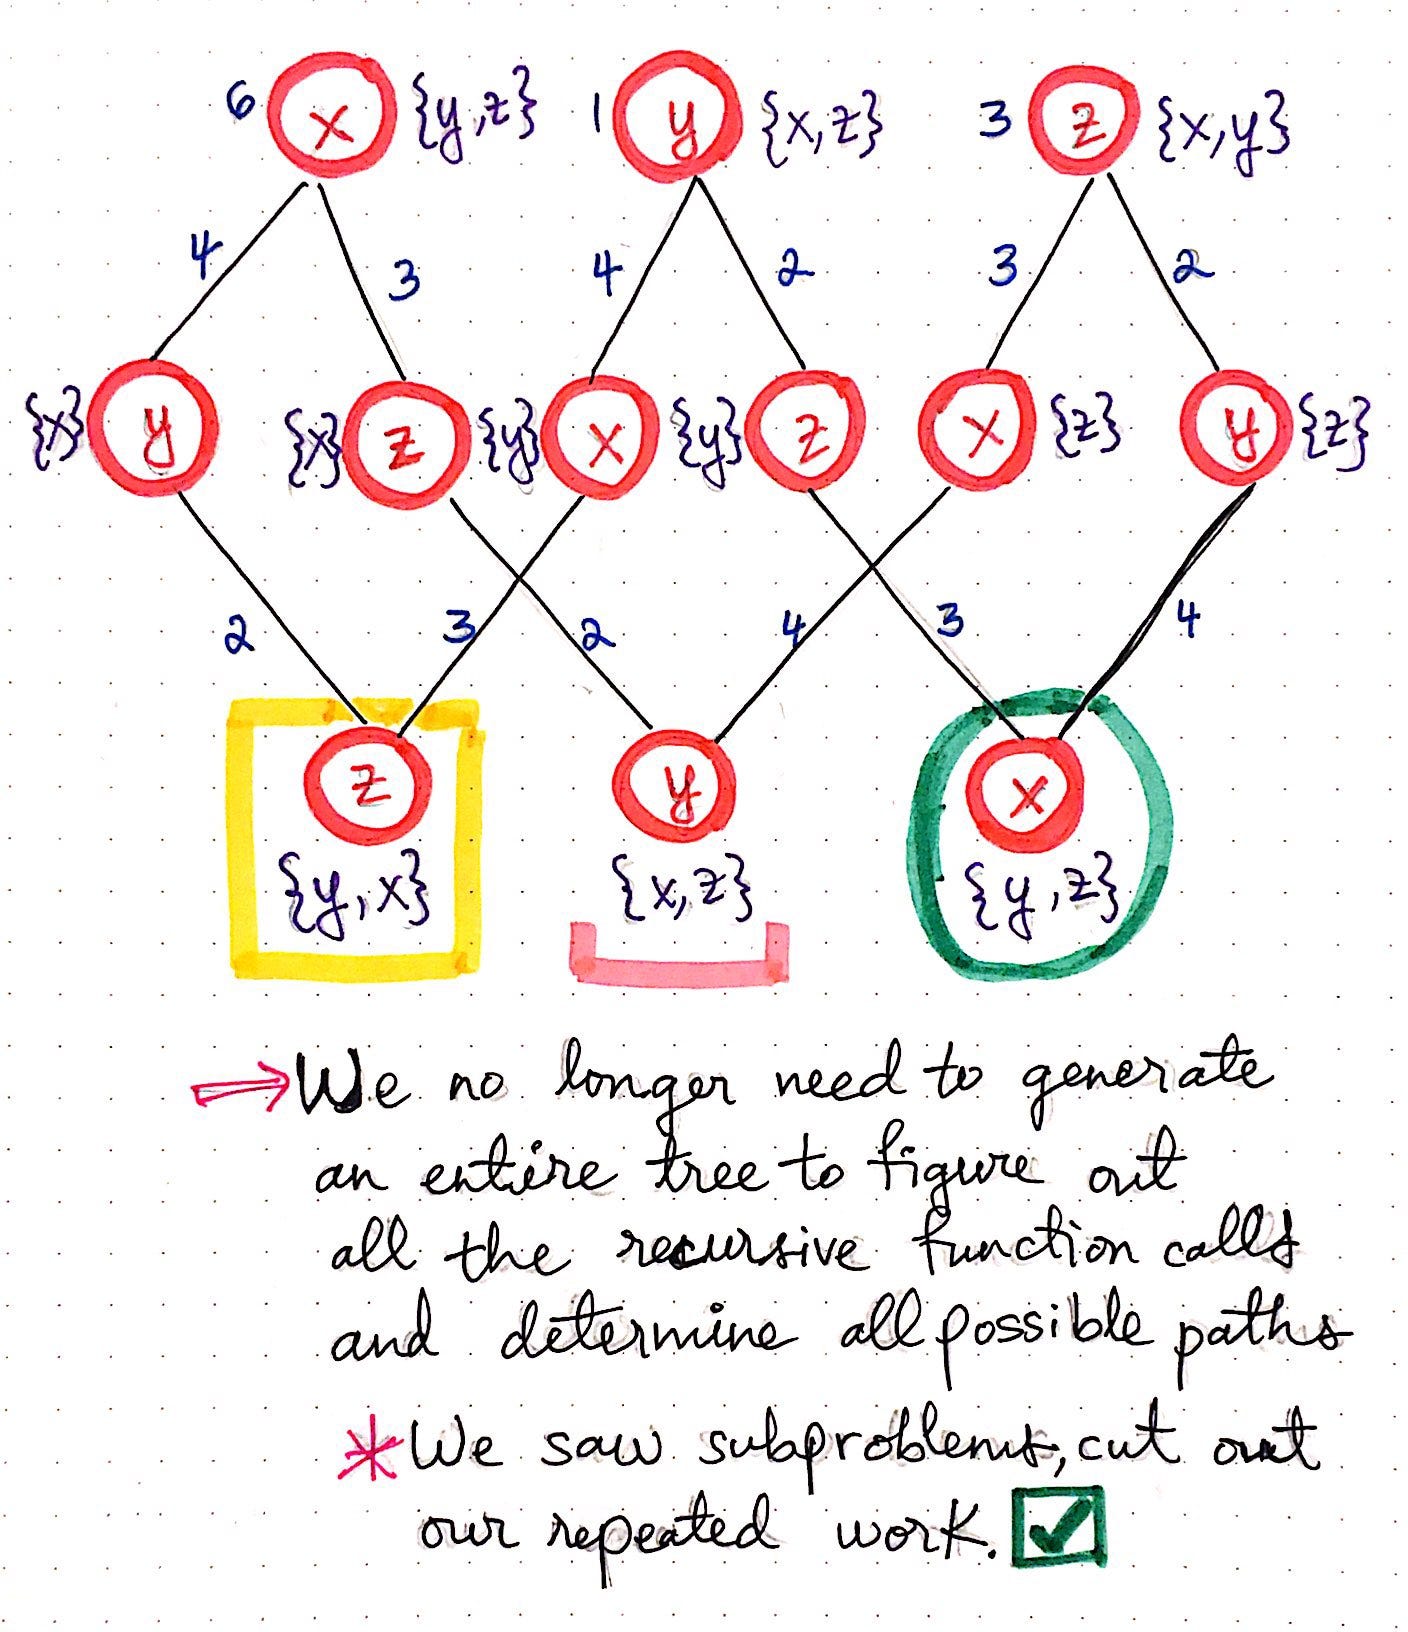 6 x {y,z} 1 y {x,z} 3 z {x,y}
4 3 4 2 3 2
{x} y {x} z {y} x {y} z x {z} y {z}
2 3 2 4 3 4
z y x
{y,x} {x,z} {y,z}
We no longer need to generate
an entire tree to figure out
all the recursive function calls
and determine all possible paths
*We saw subproblems, cut out
our repeated work.